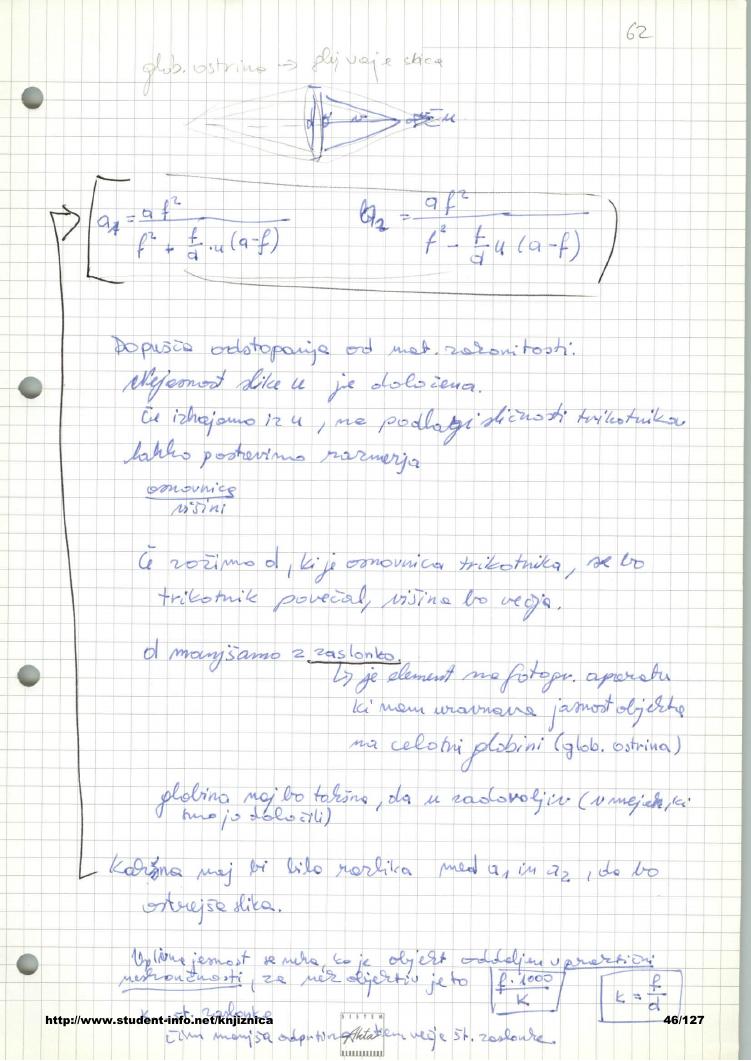 62
glob. ostrina →
d v u
a₁ = a f² / (f² + f/d · u (a-f))
a₂ = a f² / (f² - f/d u (a-f))
Dopušča odstopanja od mat. zakonitosti.
Nejasnost slike u je določena.
Če izhajamo iz u, na podlagi sličnosti trikotnika
lahko postavimo razmerja
osnovnica
višini
Če zožimo d, ki je osnovnica trikotnika, se bo
trikotnik povečal, višina bo večja.
d manjšamo z zaslonko
↳ je element na fotogr. aparatu
ki nam uravnava jasnost objekta
na celotni globini (glob. ostrina)
globina naj bo takšna, da u zadovoljiv (v mejah, ki
smo jo določili)
Kakšna naj bi bila razlika med a₁ in a₂, da bo
ostrejša slika.
jasnost se neha, ko je objekt oddaljen v praktični
neskončnosti, za nek objektiv je to f · 1000 / K
k = f/d
zaslonke
http://www.student-info.net/knjiznica
SISTEM
Akta
46/127
čim manjša odprtina večje št. zaslonke.